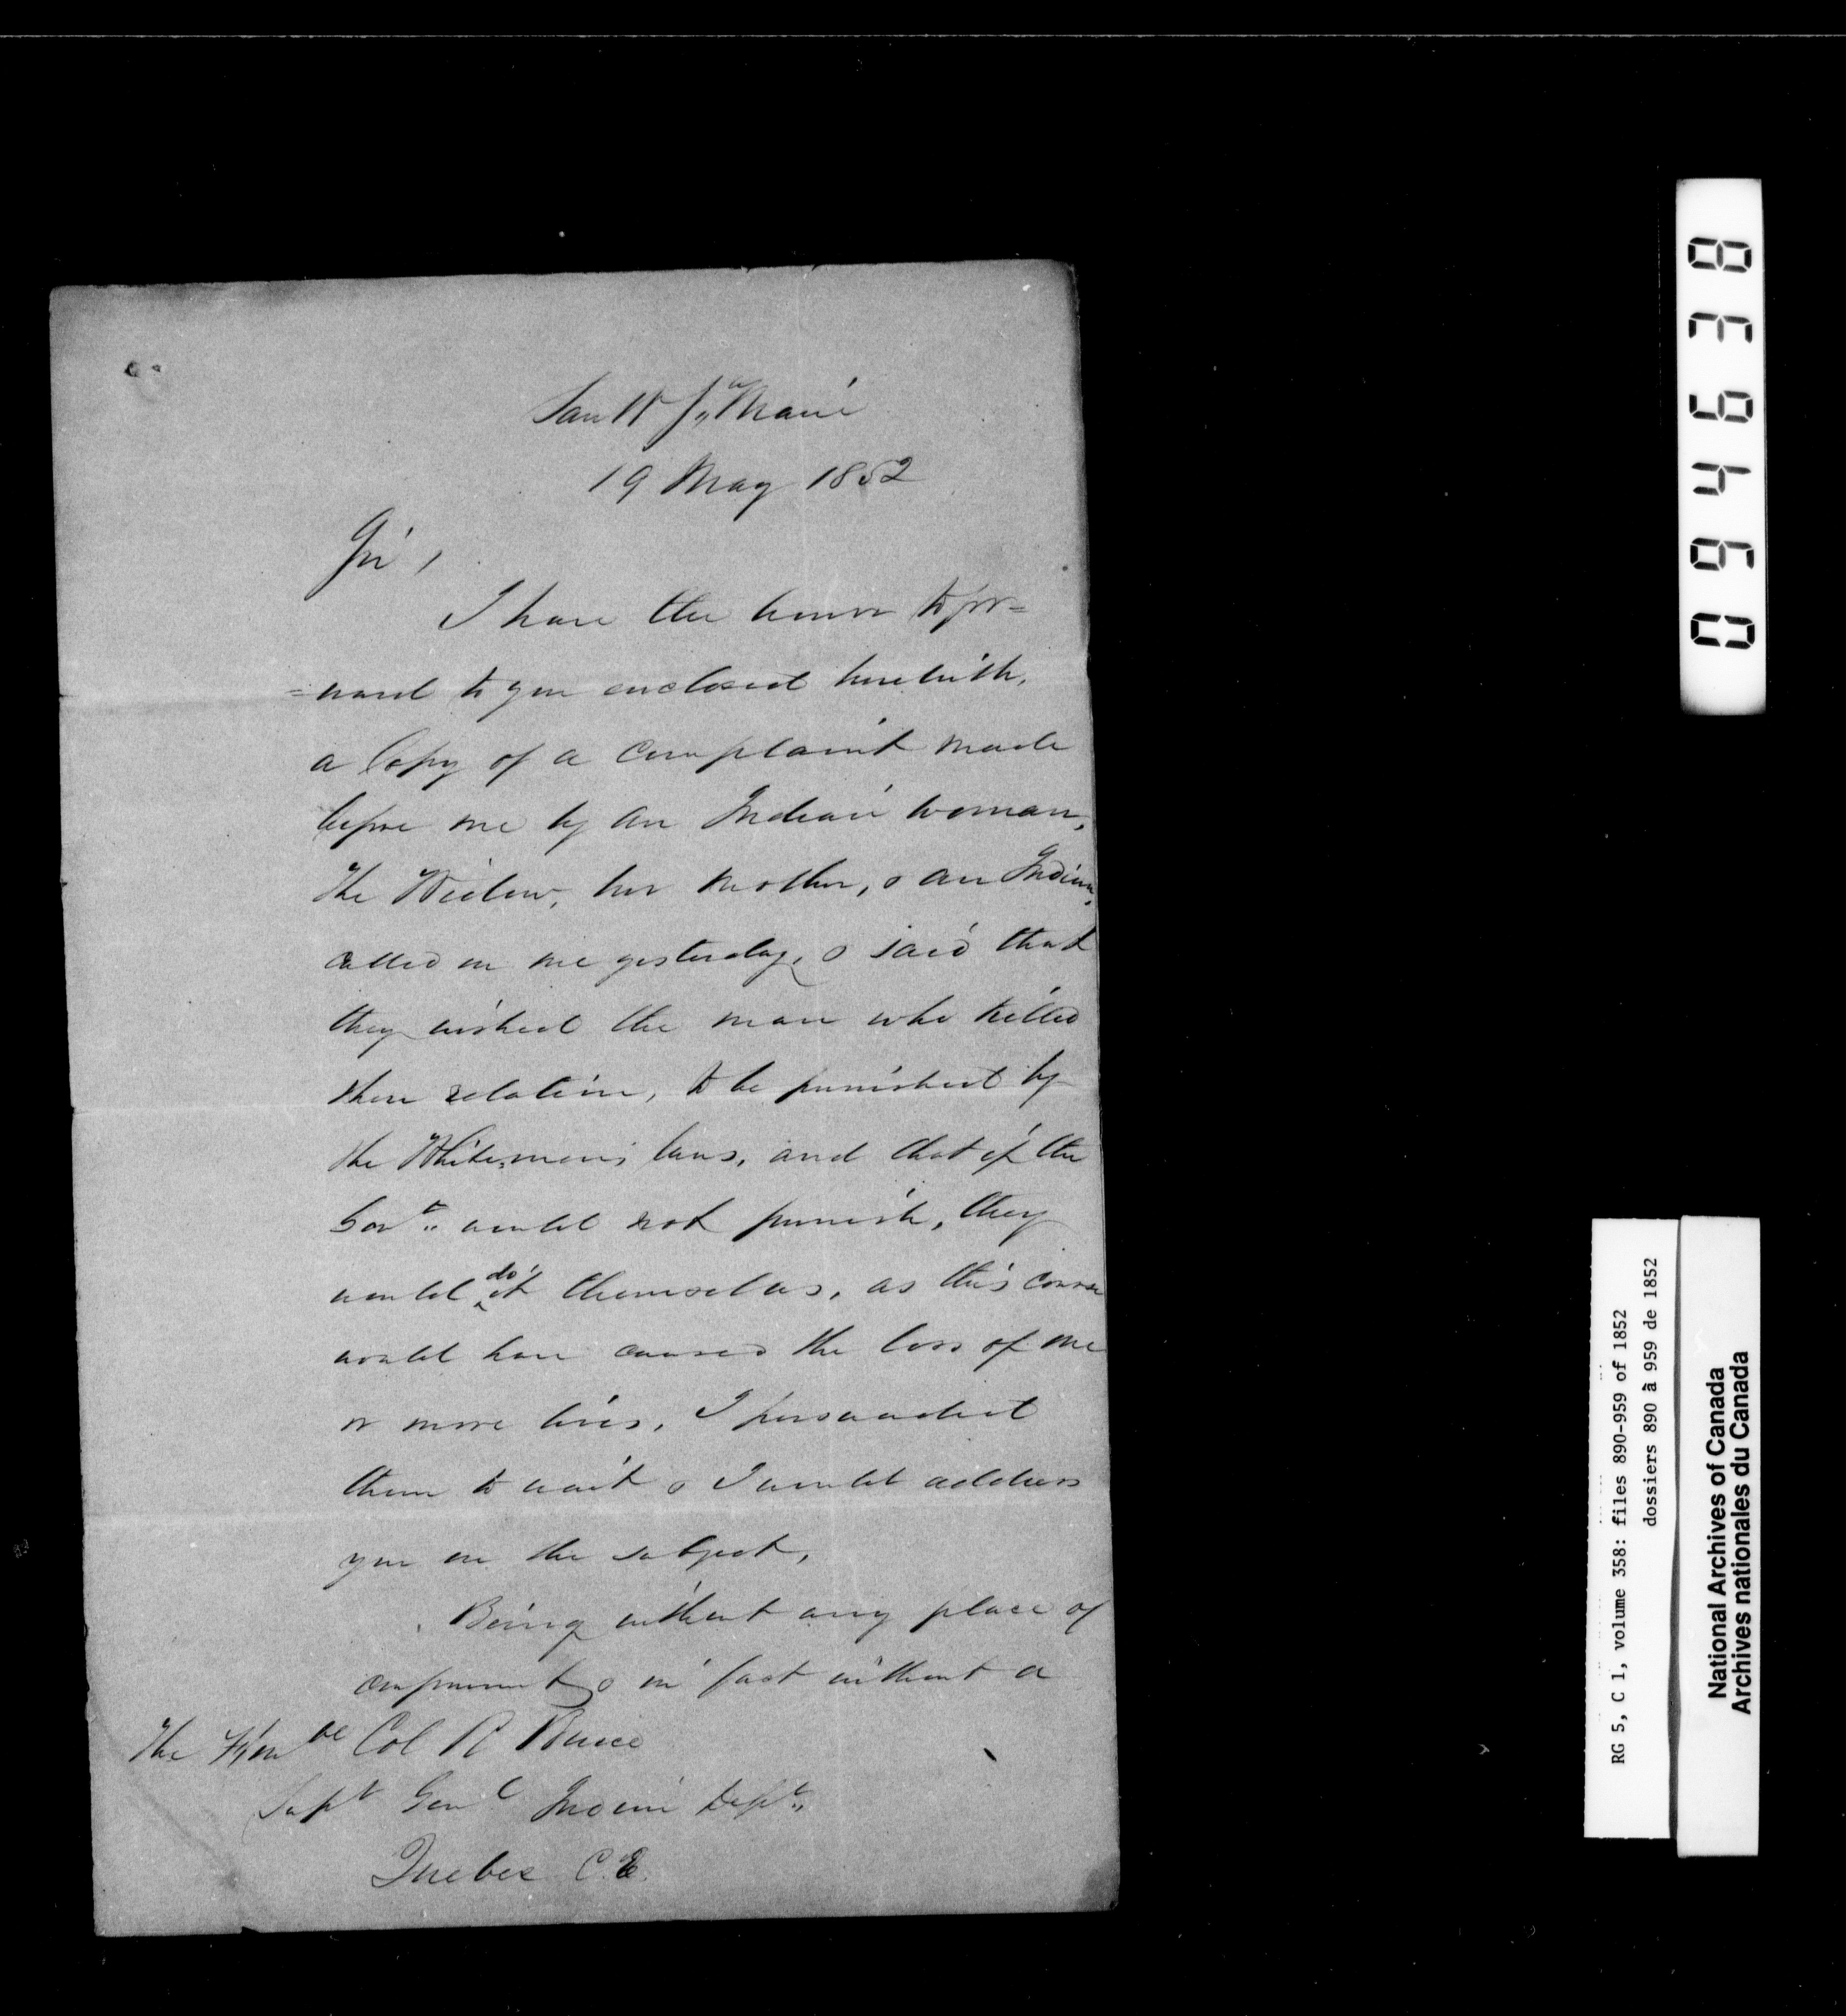 Sault Ste Marie
19 May 1852
Sir,
I have the honor to for=
=ward to you enclosed herewith,
a Copy of a complaint made
before me by an Indian woman,
The Widow, her mother, & an Indian,
called on me yesterday, & said that
they wished the man who killed
their relation, to be punished by
the Whitemen's laws, and that if the
Govt. would not punish, they
would do it themselves, as this course
would have caused the loss of one
or more lives, I persuaded
them to wait & I would address
you on the subject,
Being without any place of
confinement & in fact without a
The Honble Col R Bruce
Supt Genl Indian Dept.,
Quebec C.E.
094638
RG 5, C 1, volume 358: files 890-959 of 1852
dossiers 890 à 959 de 1852
National Archives of Canada
Archives nationales du Canada